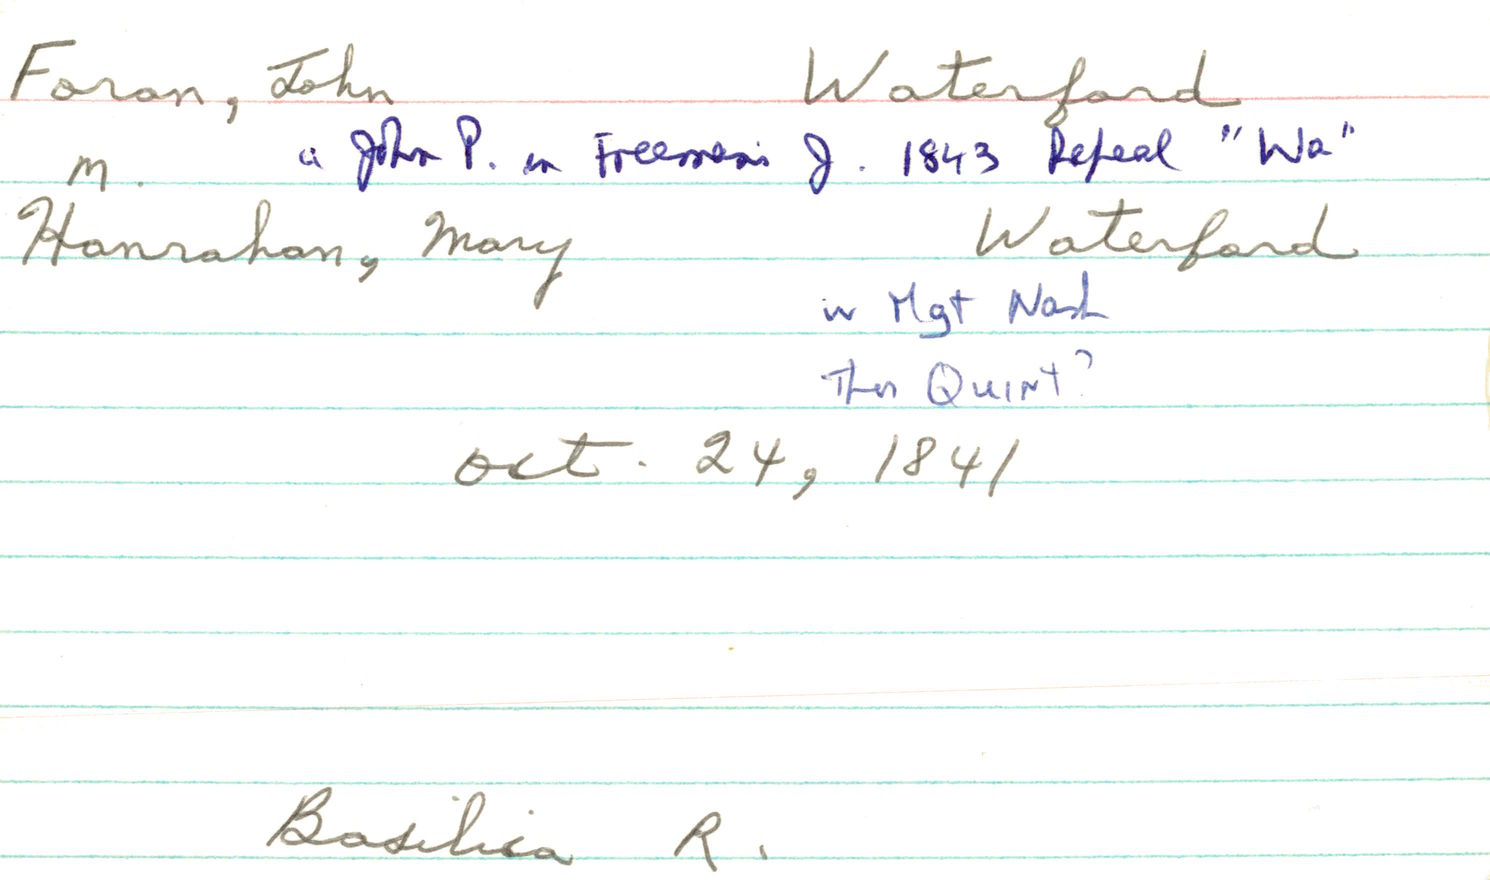 Foran, John Waterford
a John P. in Freeman's J. 1843 Repeal "Wa"
m.
Hanrahan, Mary Waterford
w Mgt Nash
Thos Quint?
Oct. 24, 1841
Basilica R.